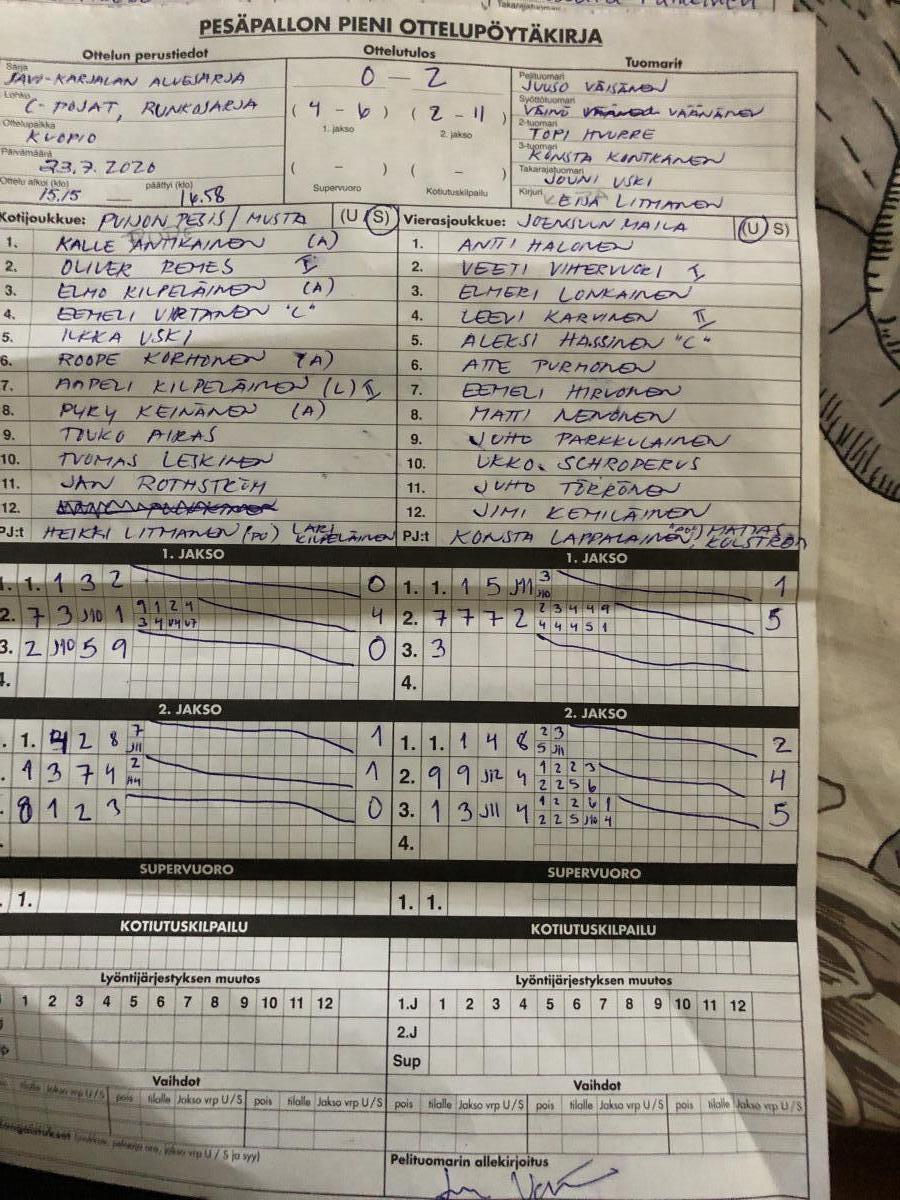 PESÄPALLON PIENI OTTELUPÖYTÄKIRJA
Ottelun perustiedot
Ottelutulos
Tuomarit
Sarja
SAVO-KARJALAN ALUESARJA
Lohko
C-POJAT, RUNKOSARJA
Ottelupaikka
KUOPIO
Päivämäärä
23.7.2020
Ottelu alkoi (klo) päättyi (klo)
15.15 — 16.58
0 – 2
( 4 – 6 ) ( 2 – 11 )
1. jakso 2. jakso
( – ) ( – )
Supervuoro Kotiutuskilpailu
Pelituomari
JUUSO VÄISÄNEN
Syöttötuomari
VÄINÖ VÄÄNÄNEN
2-tuomari
TOPI HUURRE
3-tuomari
KONSTA KONTKANEN
Takarajatuomari
JOUNI USKI
Kirjuri
LITMANEN
Kotijoukkue: PUIJON PESIS / MUSTA (U S)
1. KALLE ANTIKAINEN (A)
2. OLIVER REMES I
3. ELMO KILPELÄINEN (A)
4. EEMELI VIRTANEN "C"
5. ILKKA USKI
6. ROOPE KORHONEN (A)
7. AAPELI KILPELÄINEN (L) II
8. PYRY KEINÄNEN (A)
9. TOUKO AIRAS
10. TUOMAS LESKINEN
11. JAN ROTHSTRÖM
12.
PJ:t HEIKKI LITMANEN (PJ) LARI KILPELÄINEN
Vierasjoukkue: JOENSUUN MAILA (U S)
1. ANTTI HALONEN
2. VEETI VIHERVUORI I
3. ELMERI LONKAINEN
4. LEEVI KARVINEN II
5. ALEKSI HASSINEN "C"
6. ATTE PURMONEN
7. EEMELI HIRVONEN
8. MATTI NENONEN
9. JUHO PARKKULAINEN
10. UKKO SCHRODERUS
11. JUHO TÖRRÖNEN
12. JIMI KEMILÄINEN
PJ:t KONSTA LAPPALAINEN, MATIAS KULSTRÖM
1. JAKSO
1. 1. 1 3 2 0
2. 7 3 J10 1 9 1 2 4 4
3. 2 J10 5 9 0
4.
1. JAKSO
1. 1. 1 5 J11 3 1
J10
2. 7 7 7 2 2 3 4 4 9 5
4 4 4 5 1
3. 3
4.
2. JAKSO
1. 4 2 8 7 1
J11
1 3 7 4 2 1
8 1 2 3 0
2. JAKSO
1. 1. 1 4 8 2 3 2
5 J11
2. 9 9 J12 4 1 2 2 3 4
2 2 5 6
3. 1 3 J11 4 1 2 2 6 1 5
2 2 5 J10 4
4.
SUPERVUORO
1.
SUPERVUORO
1. 1.
KOTIUTUSKILPAILU
KOTIUTUSKILPAILU
Lyöntijärjestyksen muutos
1 2 3 4 5 6 7 8 9 10 11 12
Lyöntijärjestyksen muutos
1.J 1 2 3 4 5 6 7 8 9 10 11 12
2.J
Sup
Vaihdot
tilalle Jakso vrp U/S pois tilalle Jakso vrp U/S pois tilalle Jakso vrp U/S
Vaihdot
pois tilalle Jakso vrp U/S pois tilalle Jakso vrp U/S pois tilalle Jakso vrp U/S
jakso vrp U/S ja syy)
Pelituomarin allekirjoitus